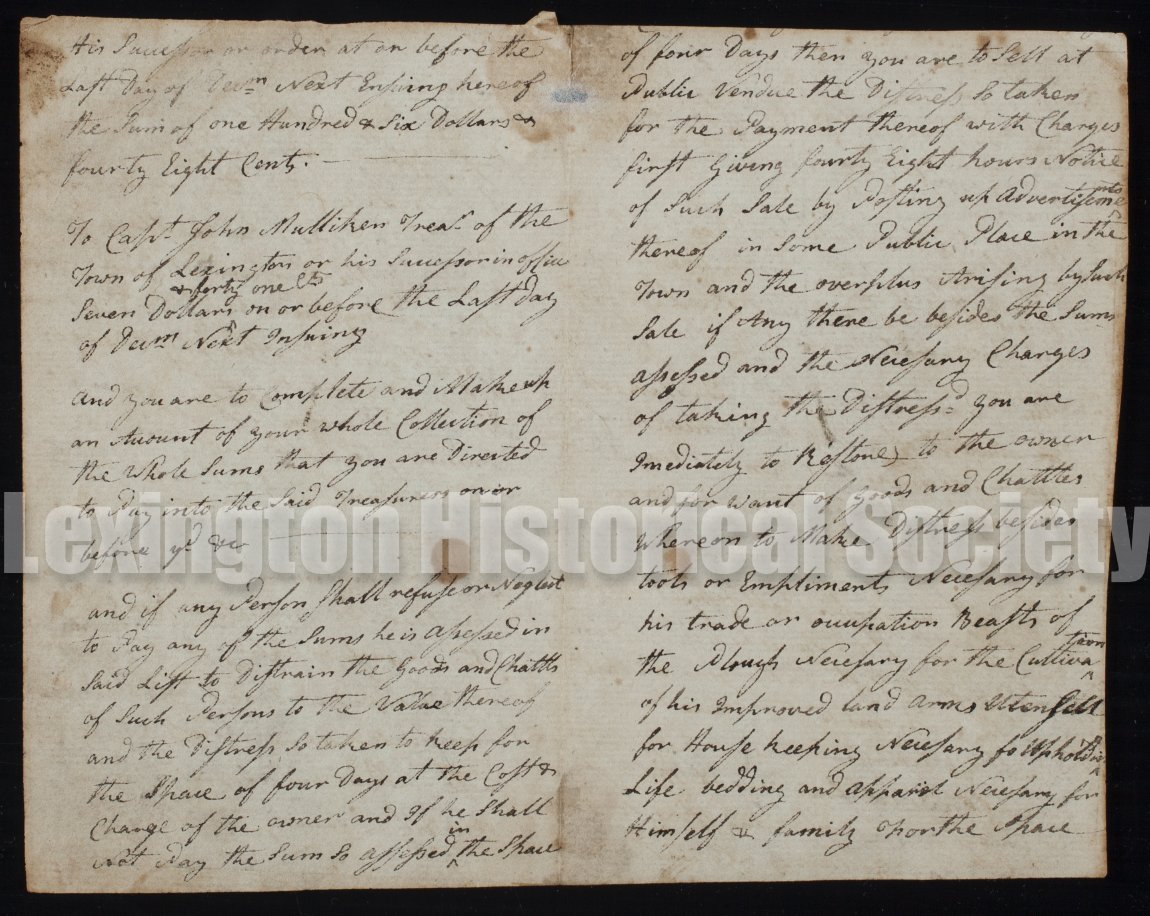 His Successor or order at or before the
Last Day of Decm Next Ensuing hereof
the Sum of one Hundred & Six Dollars &
fourty Eight Cents.
To Capt. John Mulliken Treas. of the
Town of Lexington or his Successor in office
& forty one Cts
Seven Dollars on or before the Last day
of Decm Next Insuing
and you are to Complete and Make up
an Acount of your whole Collection of
the Whole Sums that you are Directed
to Pay into the Said Treasurers on or
before ye &c
and if any Person Shall refuse or Neglect
to Pay any of the Sums he is assessed in
Said List to Distrain the Goods and Chattls
of Such Persons to the Value thereof
and the Distress So taken to keep for
the Space of four Days at the Cost &
Charge of the owner and If he Shall
in
Not Pay the Sum So assessed the Space
of four Days then you are to Sell at
Public Vendue the Distress So taken
for the Payment thereof with Charges
first Giving fourty Eight hours Notice
of Such Sale by Posting up Advertisments
thereof in Some Public Place in the
Town and the overplus Arising by Such
Sale if Any there be besides the Sums
assessed and the Necesary Charges
of taking the Distress you are
Imediately to Restore to the owner
and for want of Goods and Chattles
Whereon to Make Distress besides
tools or Empliments Necesary for
his trade or occupation Beasts of
the Plough Necesary for the Cultivation
of his Improved land Arms Utensells
for House keeping Necesary for upholding
Life bedding and apparel Necesary for
Himself & family for the Space
Lexington Historical Society